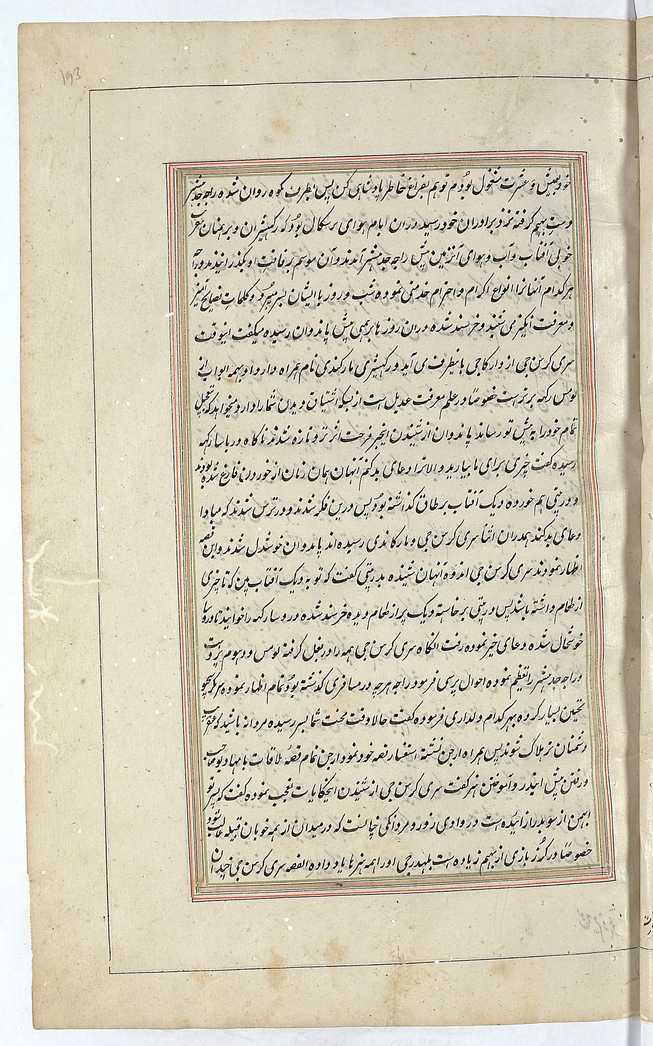 193
خود بعیش و عشرت مشغول بودم تو هم بفراغ خاطر پادشاهی کن پس بطرف کوه روان شده راجه جدهشتر
دست بهیم گرفته نزد برادران خود رسید دران ایام هوای برسکال بود که رکهیشران و برهمنان
خوبی آفتاب و آب و هوای آنزمین پیش راجه جدهشتر آمدند و آن موسم برفاقت او بگذرانیدند و راجه
هر کدام آنها را انواع اکرام و احترام خدمتی نموده شب و روز با ایشان بسر میبرد و کلمات نصایح آمیز
و معرفت انگیز می شنید و خرسند شده دران روزها برهمنی پیش پاندوان رسیده میگفت اینوقت
سری کرسن جی از دوارکا جی باینطرف می آید و رکهیشری مارکندی نام همراه دارد او بهمه ابواب
لومس رکهه برتر است خصوصا در علم معرفت عدیل است از بسکه اشتیاق دیدن شما را دارد میخواهد که بتعجیل
تمام خود را پیش تو رساند پاندوان از شنیدن اینخبر فرحت اثر تر و تازه شدند ناگاه درباسا رکهه
رسیده گفت چیزی برای ما بیارید و الا ترا دعای بد کنم آنهان همان زمان از خوردن فارغ شده بودند
و درپتی هم خورده دیک آفتاب بر طاق گذاشته بود پس درین فکر شدند و در ترس شدند که مبادا
دعای بد کند همدران اثنا سری کرسن جی و مارکاندی رسیده اند پاندوان خوشدل شدند و این قصه
اظهار نمودند سری کرسن جی اندوه آنهان شنیده بدرپتی گفت که تو به دیک آفتاب ببین که تا چیزی
از طعام داشته باشد پس درپتی برخاسته دیک پر از طعام دیده خرسند شده درباسا رکهه را خوانیدند تا درباسا
خوشحال شده دعای خیر نموده رفت انگاه سری کرسن جی همه را در بغل گرفته لومس و دهوم
و راجه جدهشتر را تعظیم نموده احوال پرسی فرمود راجه هر چه در مسافری گذشته بود تمام اظهار نموده سری کرسن جی
تحسین بسیار کرده بهر کدام دلداری فرموده گفت حالا وقت محنت شما بسر رسیده مردانه باشید که
دشمنان تو هلاک شوند پس همراه ارجن نشسته استفسار قصه خود نمود ارجن تمام قصه ملاقات با مهادیو
و رفتن پیش ایندر و آموختن هنر گفت سری کرسن جی از شنیدن اینحکایات تعجب نموده گفت که پسر تو
ابهمن از سوبدرا زائیده است در وادی زور و مردانکی چنانست که در میدان از همه خوبان قبیله غالب شود
خصوصا در گرز بازی از بهیم زیاده است بلبهدر جی او را همه هنرها یاد داده القصه سری کرسن جی چندان